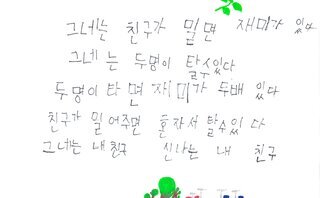 그네는 친구가 밀면 재미가 있다
그네는 두명이 탈수있다
두명이 타면 재미가 두배 있다
친구가 밀어주면 혼자서 탈수있다
그네는 내친구 신나는 내 친구